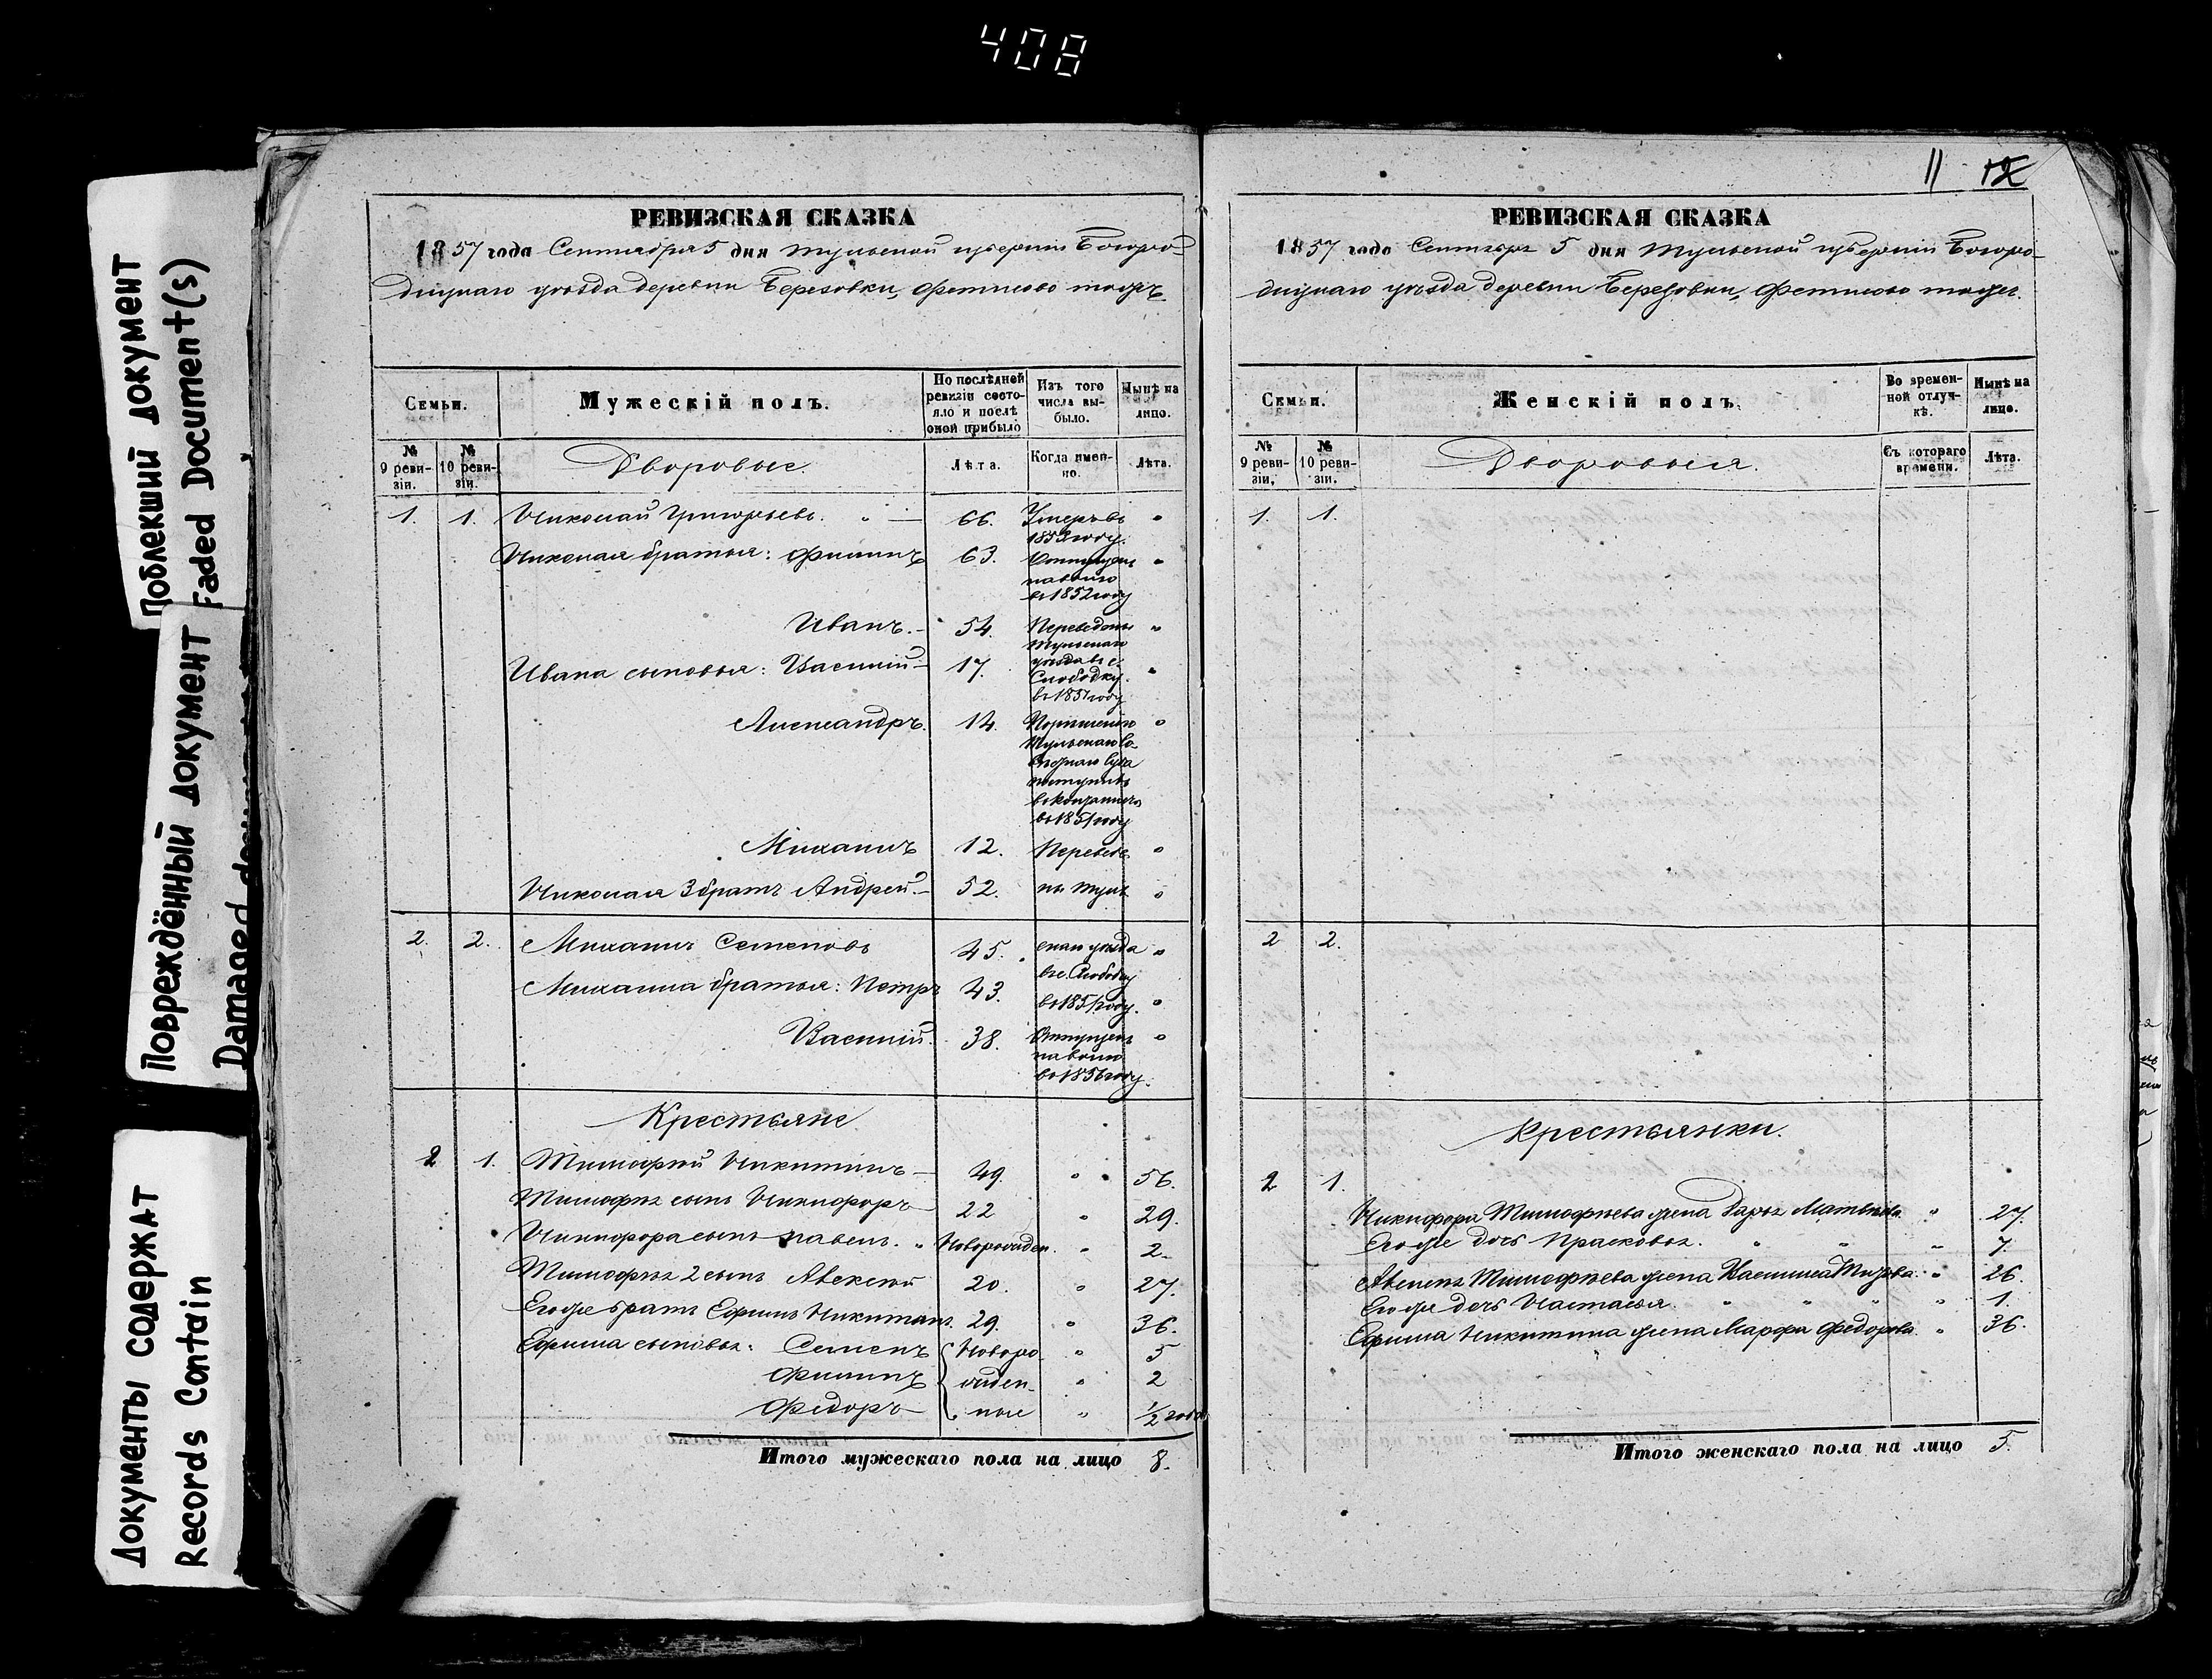 408
Поблекший документ
Faded Document(s)
Повреждённый документ
Damaged
Документы содержат
Records Contain
РЕВИЗСКАЯ СКАЗКА
1857 года Сентября 5 дня Тульской губернiи Богоро-
дицкаго уѣзда деревни Березовки, Фетисово тожъ
Семьи.
Мужескiй полъ.
По послѣдней ревизiи состояло и послѣ оной прибыло
Изъ того числа выбыло.
Нынѣ на лицо.
№ 9 ревизiи.
№ 10 ревизiи.
Дворовые.
Лѣта.
Когда именно.
Лѣта.
1. 1. Николай Григорьевъ. „ — 66. Умеръ въ 1852 году. „
Николая братья: Филипъ 63. Отпущенъ на волю въ 1852 году „
Иванъ. - 54. Переведены Тульскаго „
Ивана сыновья: Василiй - 17. уѣзда въ с. Слободку въ 1851 году „
Александръ. 14. По рѣшенiю Тульскаго Суда въ 1851 году „
Михаилъ 12. Перевед. „
Николая 3 братъ Андрей. - 52. ны Туль „
2. 2. Михаилъ Семеновъ 45. скаго уѣзда „
въ с. Слободку
Михаила братья: Петръ 43. въ 1851 году. „
Василiй. 38. Отпущенъ на волю въ 1856 году. „
Крестьяне
2 1. Тимофей Никитинъ - 49. „ 56.
Тимофея сынъ Никифоръ - 22 „ 29.
Никифора сынъ Павелъ. „ Новорожден. „ 2.
Тимофея 2 сынъ Алексей 20. „ 27.
Его же братъ Ефимъ Никитинъ. 29. „ 36.
Ефима сыновья: Семенъ Новоро- „ 5
Филипъ жден- „ 2
Федоръ - ные „ 1/2 года
Итого мужескаго пола на лицо 8.
11 12
РЕВИЗСКАЯ СКАЗКА
1857 года Сентября 5 дня Тульской губернiи Богоро-
дицкаго уѣзда деревни Березовки, Фетисово тожъ.
Семьи.
Женскiй полъ.
Во временной отлучкѣ.
Нынѣ на лицо.
№ 9 ревизiи.
№ 10 ревизiи.
Дворовыя.
Съ котораго времени.
Лѣта.
1. 1.
2 2.
Крестьянки.
2 1.
Никифора Тимофеева жена Дарья Матвѣева „ 27.
Его же дочь Прасковья. „ „ „ 7.
Алексея Тимофеева жена „ 26.
Его же дочь Настасья. „ „ „ „ 1.
Ефима Никитина жена Марфа Федорова. „ 36.
Итого женскаго пола на лицо 5.